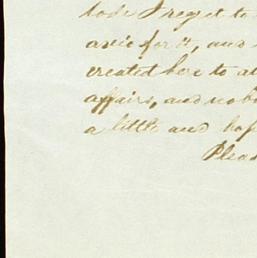 I regret to
for it, and
created here to at
affairs, and nobo
a little and hop
Pleas